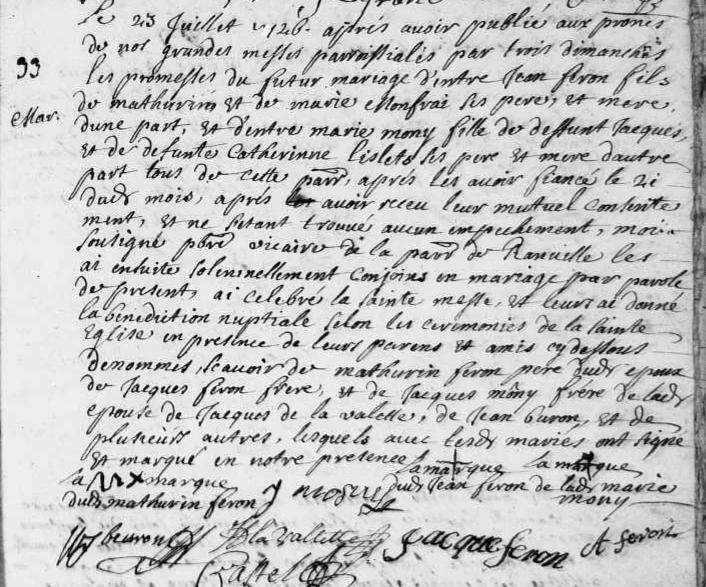 Le 23 Juillet 1726 asprés avoir publié aux prones
de nos grandes messes parroissiales par trois dimanches
33
les promesses du futur mariage d'entre Jean feron fils
de mathurin et de marie ses pere, et mere,
Mar.
dune part, et d'entre marie mony fille de deffunt Jacques,
et de defunte Catherinne lislets ses pere et mere dautre
part tous de cette parr, aprés les avoir fiancé le 21
dudt mois, aprés avoir receu leur mutuel consente
ment, et ne setant trouvé aucun empechement, moi
soutigné pbre vicaire de la parr de Ranville les
ai ensuite solennellement conjoins en mariage par parole
de present, ai celebré la sainte messe, et leurs ai donné
la benediction nuptiale selon les ceremonies de la sainte
Eglise en presence de leurs parens et amis cy dessous
denommes, scavoir de mathurin feron pere dudt epoux
de Jacques feron frere, et de Jacques mony frére de ladt
epouse de Jacques de la valette, de Jean buron, et de
plusieurs autres, lesquels avec lesdt mariés ont signé
et marqué en notre presence la marque la marque
la marque dudt Jean feron de ladt marie
dudt mathurin feron J mony mony
beuron de la Vallette Jacque feron